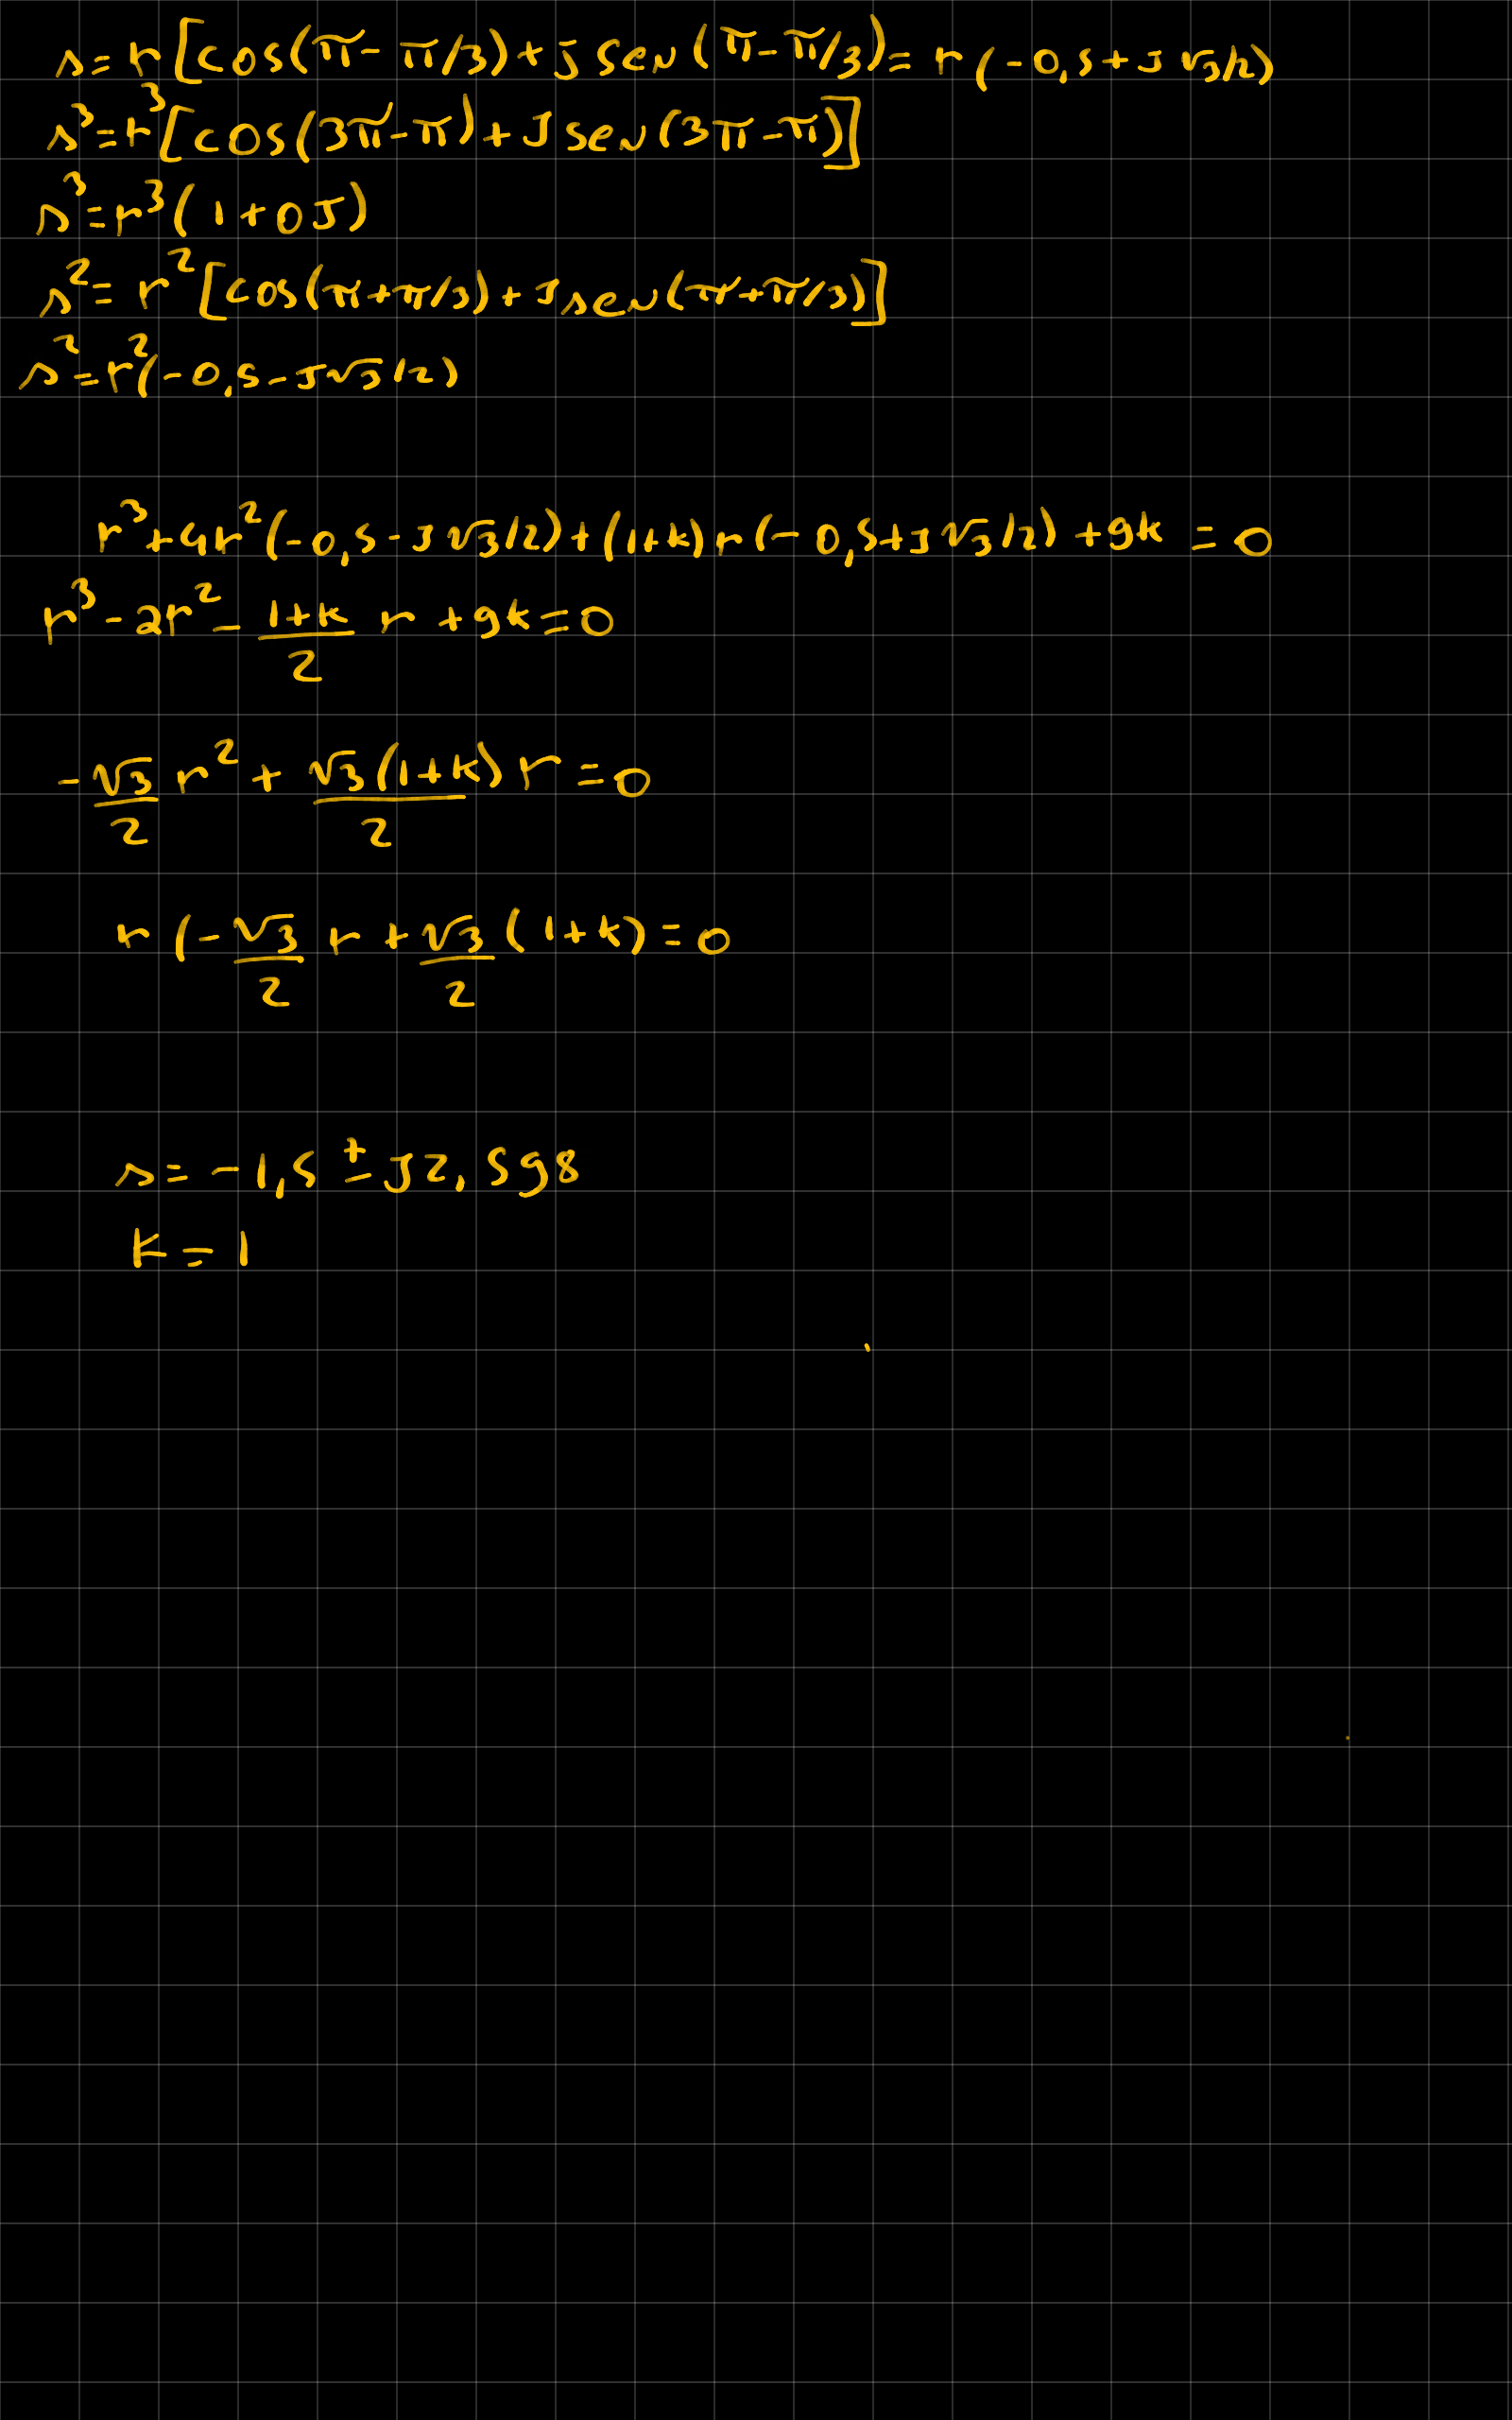 s=r[cos(π-π/3)+j sen(π-π/3)=r(-0,5+J√3/2)
s³=r³[cos(3π-π)+J sen(3π-π)]
s³=r³(1+0J)
s²=r²[cos(π+π/3)+J sen(π+π/3)]
s²=r²(-0,5-J√3/2)
r³+4r²(-0,5-J√3/2)+(1+k)r(-0,5+J√3/2)+9k=0
r³-2r²-(1+k)/2 r+9k=0
-√3/2 r²+√3(1+k)/2 r=0
r(-√3/2 r+√3/2(1+k)=0
s=-1,5±J2,598
k=1